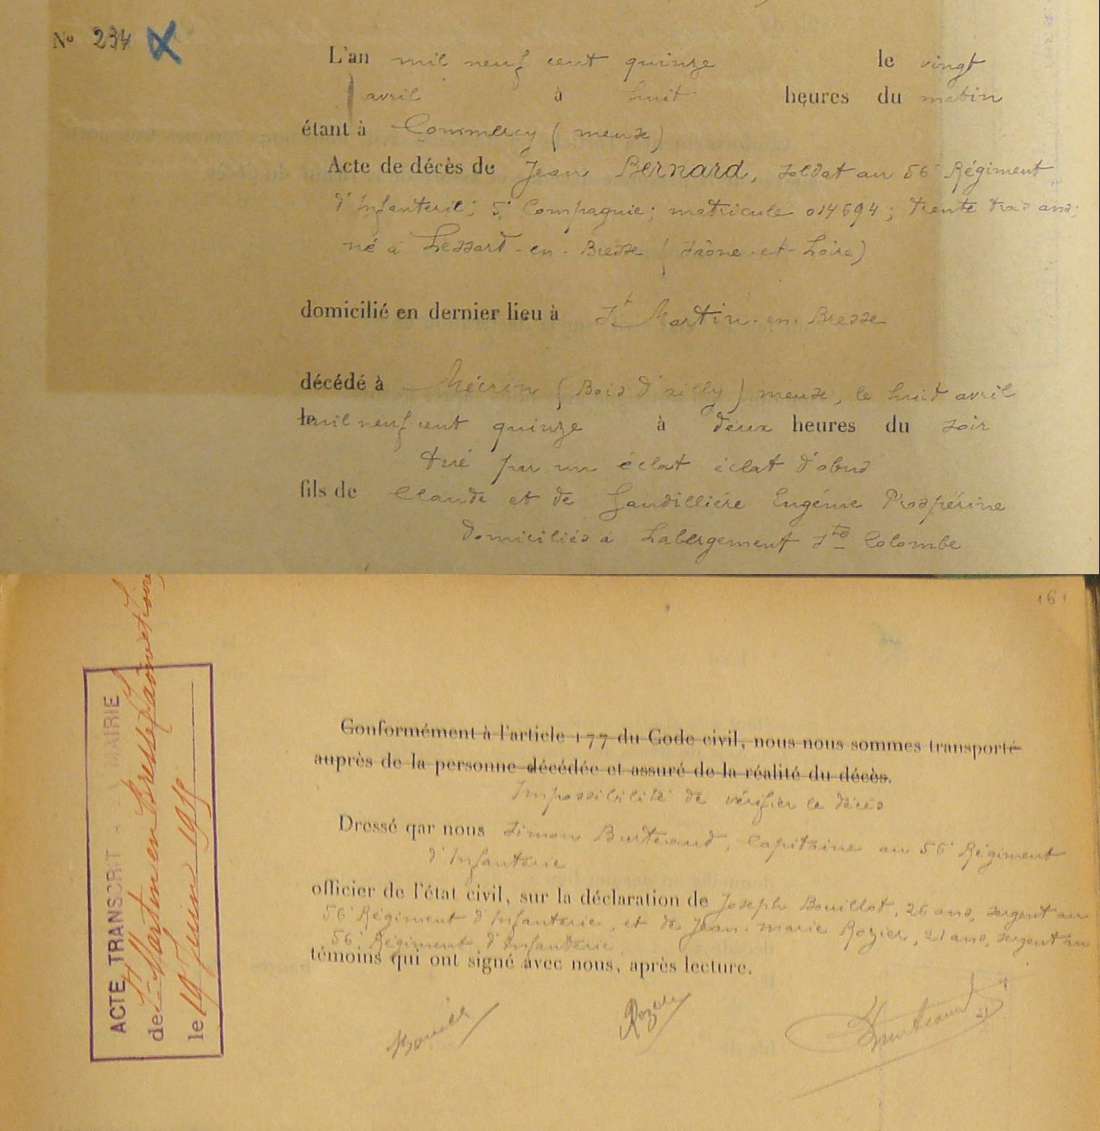 N° 234 X
L'an mil neuf cent quinze le vingt
avril à huit heures du matin
étant à Commercy (meuse)
Acte de décès de Jean Bernard, soldat au 56e Régiment
d'Infanterie; 5e Compagnie; matricule 014694; trente trois ans;
né à Lessard-en-Bresse (Saône-et-Loire)
domicilié en dernier lieu à St Martin-en-Bresse
décédé à Mécrin (Bois d'ailly) meuse, le huit avril
mil neuf cent quinze à deux heures du soir
tué par un éclat éclat d'obus
fils de Claude et de Gaudillière Eugénie Prospérine
domiciliés à Labergement Ste Colombe
161
Conformément à l'article 177 du Code civil, nous nous sommes transporté
auprès de la personne décédée et assuré de la réalité du décès.
Impossibilité de vérifier le décès
Dressé qar nous Simon Burteaud, Capitaine au 56e Régiment
d'Infanterie
officier de l'état civil, sur la déclaration de Joseph Bouillot, 26 ans, sergent au
56e Régiment d'Infanterie, et de Jean-marie Rozier, 21 ans, sergent au
56e Régiment d'Infanterie
témoins qui ont signé avec nous, après lecture.
ACTE TRANSCRIT MAIRIE
de St Martin en Bresse
le 19 Juin 1915